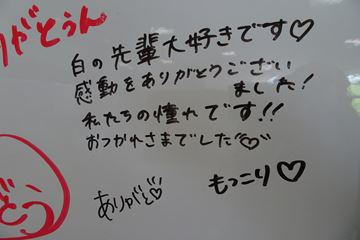 りがとうん
白の先輩大好きです♡
感動をありがとうござい
ました!
私たちの憧れです!!
おつかれさまでした♡
ありがと♡
もっこり♡
とう